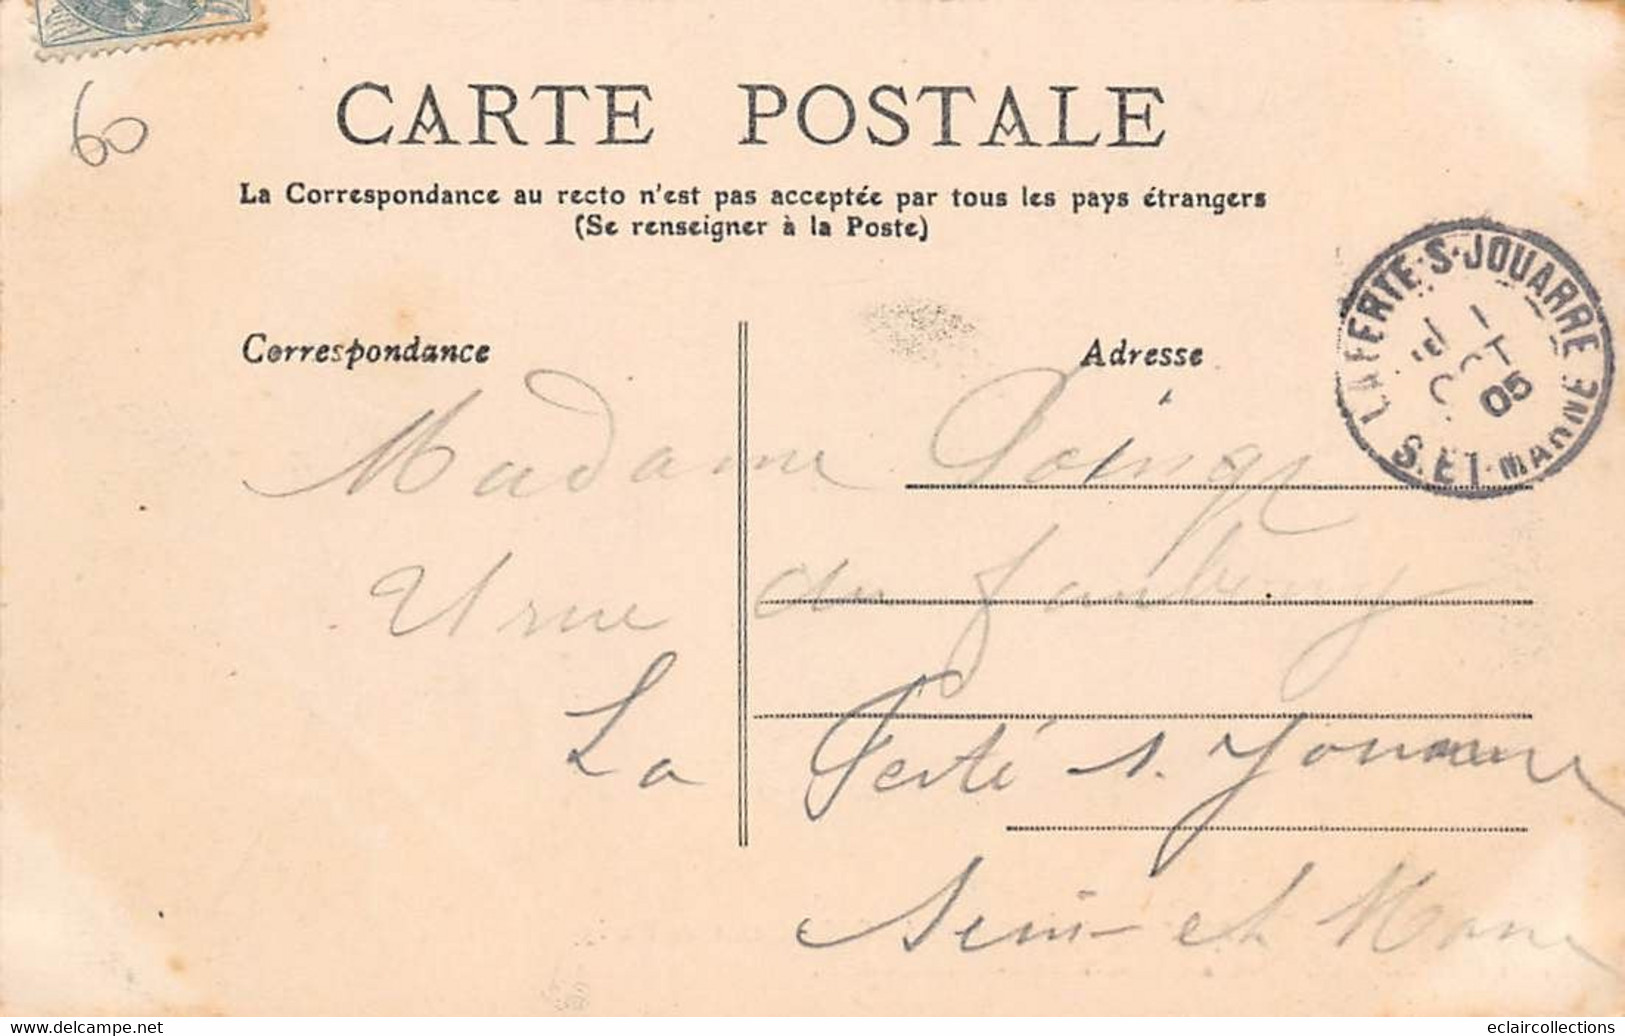 60
CARTE POSTALE
La Correspondance au recto n'est pas acceptée par tous les pays étrangers
(Se renseigner à la Poste)
Correspondance
Adresse
LA FERTE-S-JOUARRE
OCT
05
S. ET-MARNE
Madame
rue du faubourg
La Ferté s. Jouarre
Seine et Marne
www.delcampe.net
eclaircollections